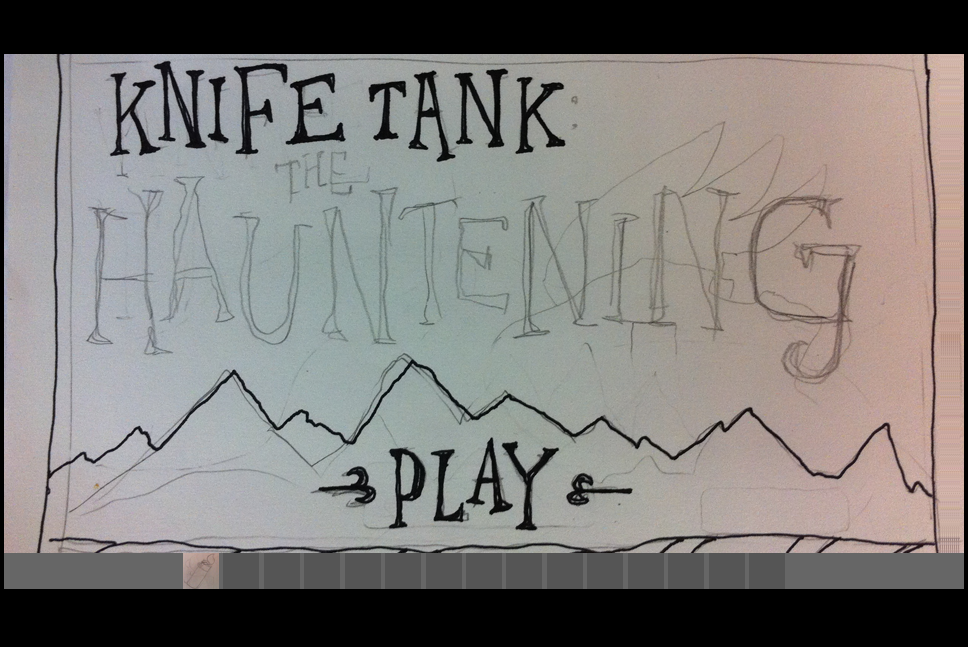 KNIFE TANK:
THE
HAUNTENING
PLAY